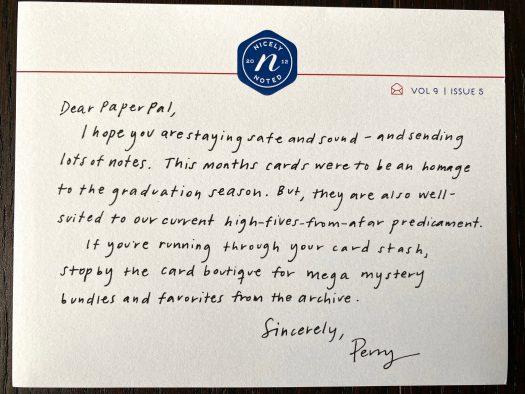 NICELY
2012
n
NOTED
VOL 9 | ISSUE 5
Dear Paper Pal,
I hope you are staying safe and sound - and sending
lots of notes. This months cards were to be an homage
to the graduation season. But, they are also well-
suited to our current high-fives-from-afar predicament.
If you're running through your card stash,
stop by the card boutique for mega mystery
bundles and favorites from the archive.
Sincerely,
Perry